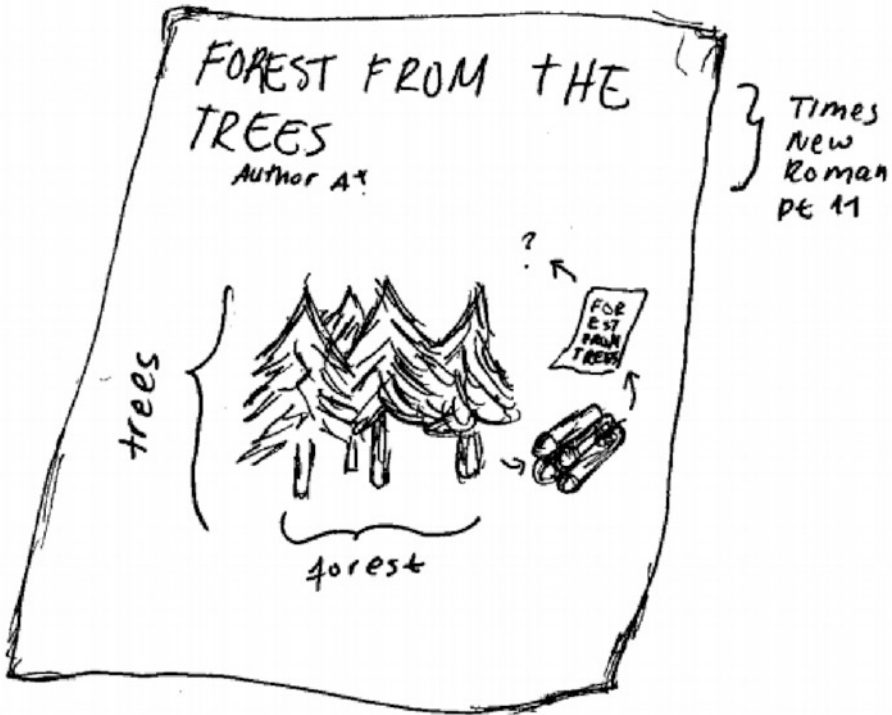 FOREST FROM THE
TREES
Author A*
Times
New
Roman
pt 11
?
FOR
EST
FROM
TREES
trees
forest